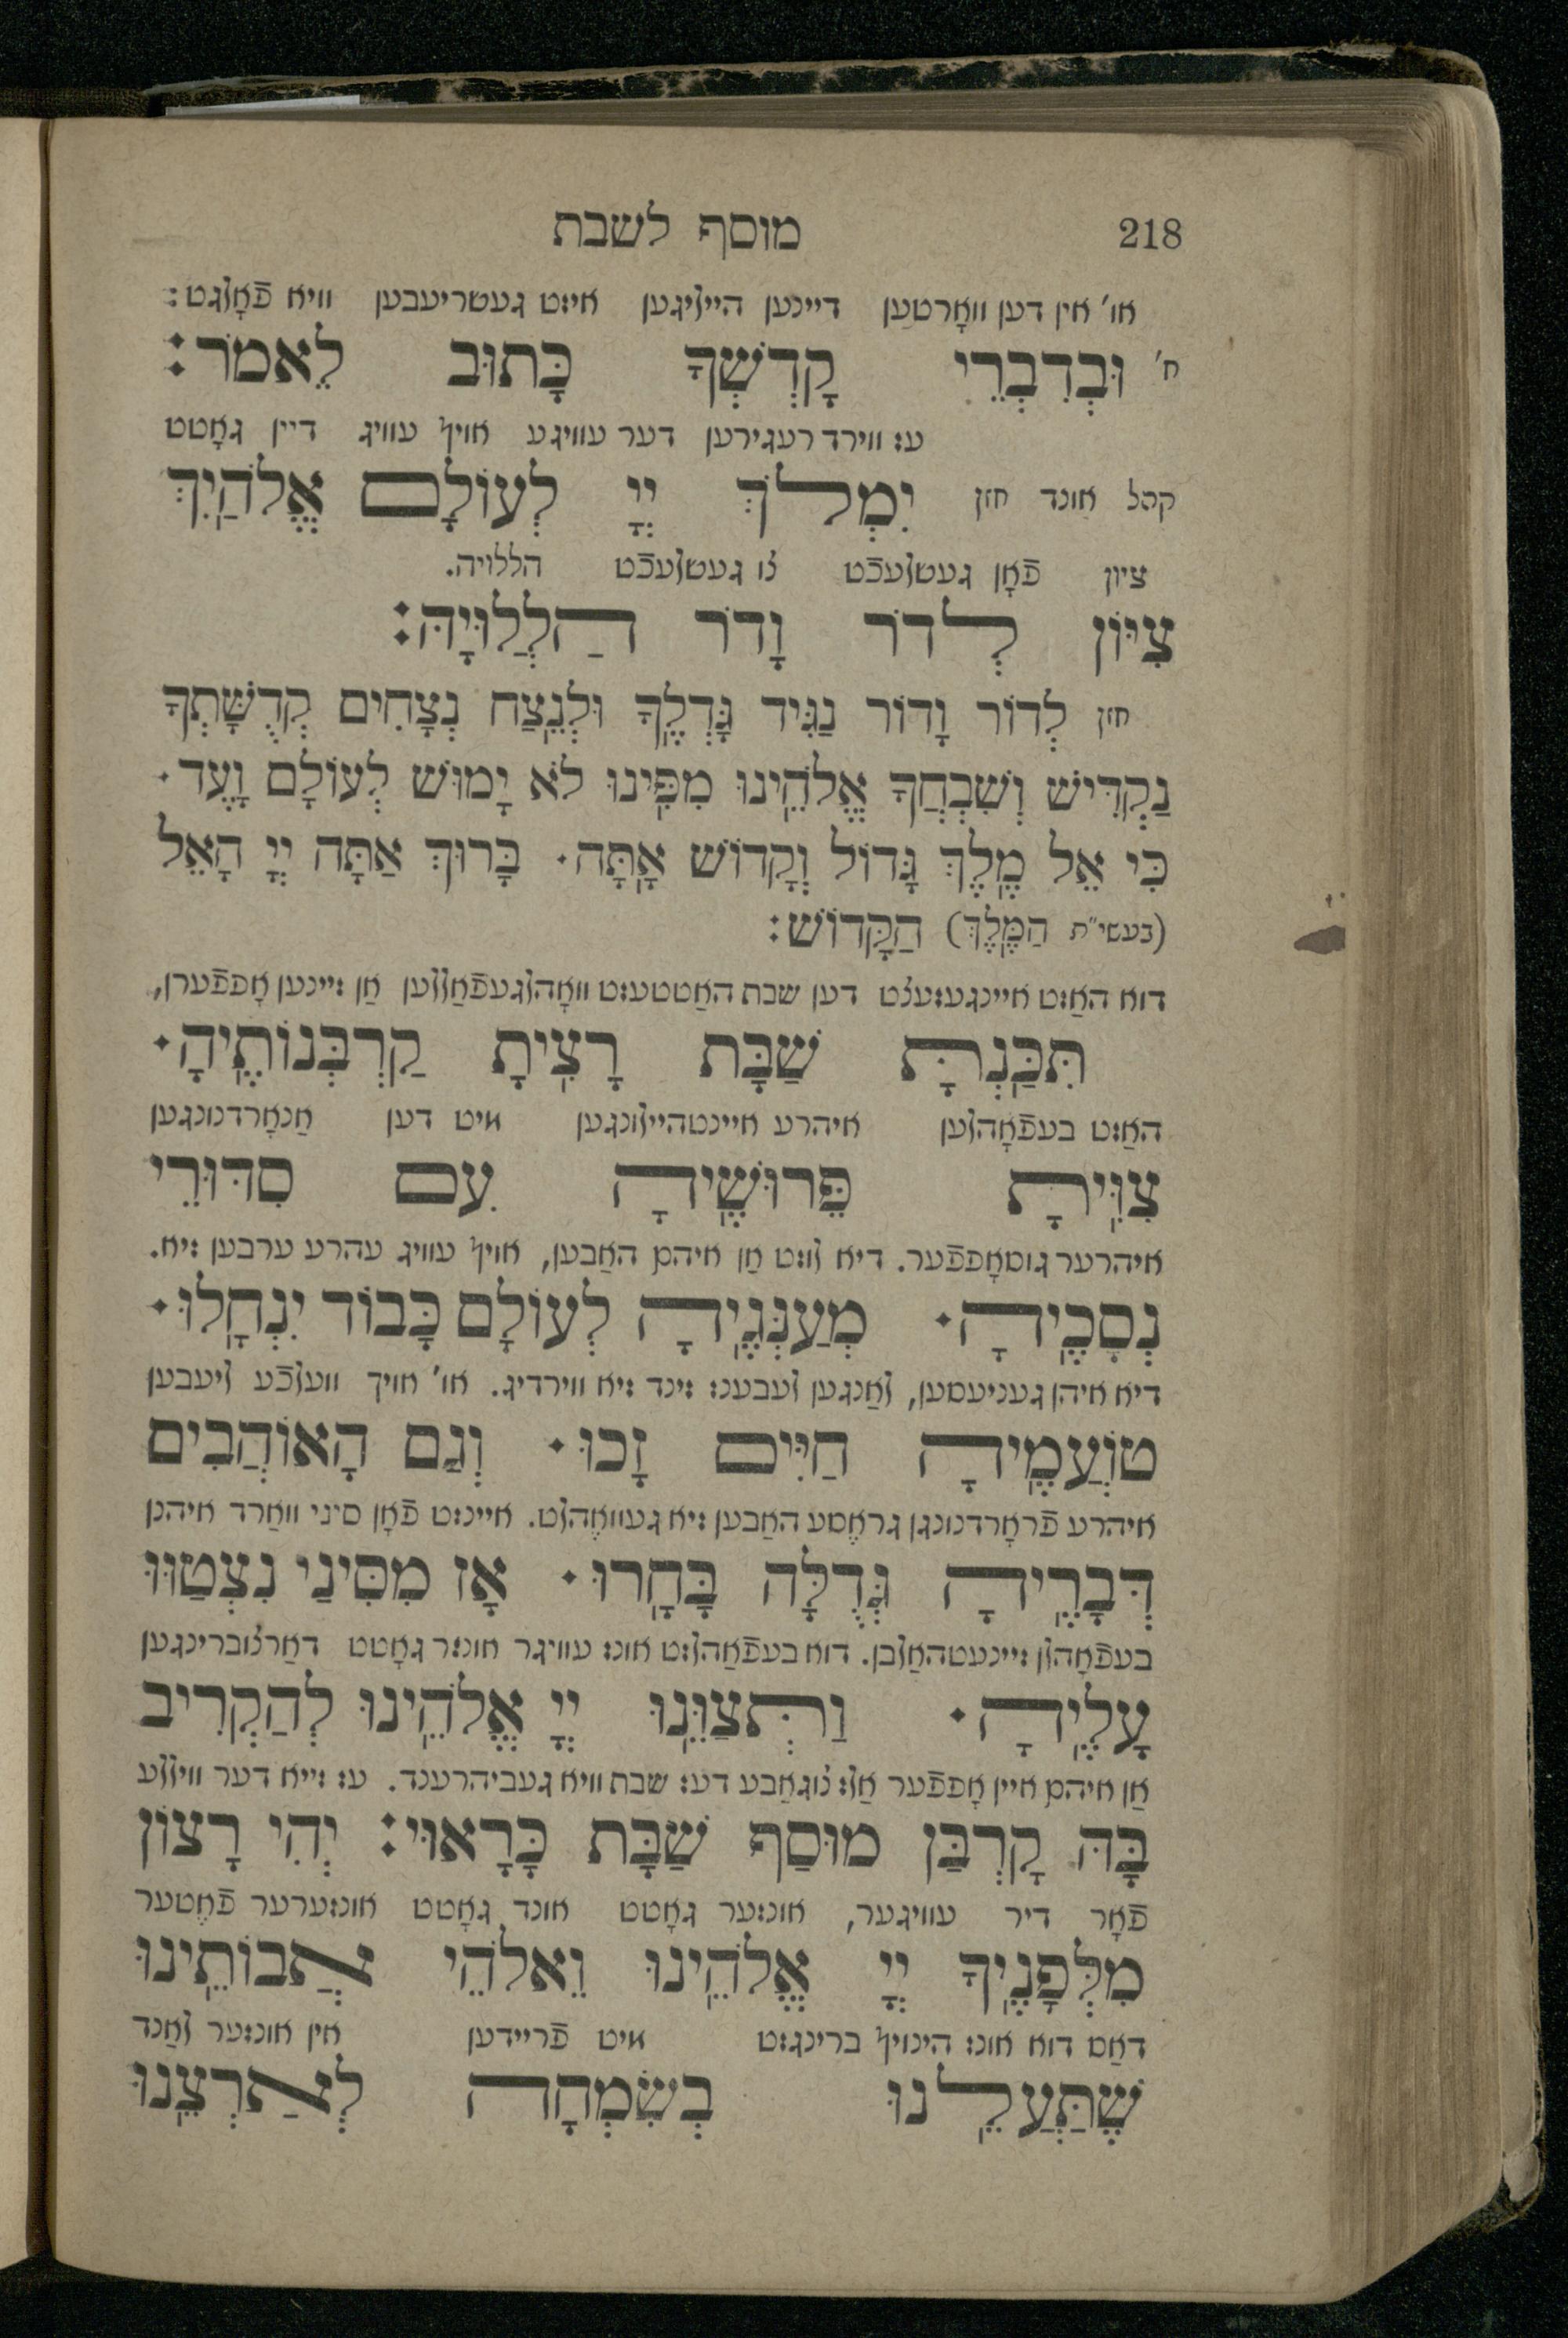 218 מוסף לשבת
או' אין דען ווארטען דיינען הייליגען איזט געשריעבען וויא פֿאָלגט:
ח' וּבְדִבְרֵי קָדְשְׁךָ כָּתוּב לֵאמֹר:
עז ווירד רעגירען דער עוויגע אויף עוויג דיין גאָטט
קהל אונד חזן יִמְלֹךְ יְיָ לְעוֹלָם אֱלֹהַיִךְ
ציון פֿאָן געשלעכֿט צו געשלעכֿט הללויה.
צִיּוֹן לְדֹר וָדֹר הַלְלוּיָהּ:
חזן לְדוֹר וָדוֹר נַגִּיד גָּדְלֶךָ וּלְנֵצַח נְצָחִים קְדֻשָּׁתְךָ
נַקְדִּישׁ וְשִׁבְחֲךָ אֱלֹהֵינוּ מִפִּינוּ לֹא יָמוּשׁ לְעוֹלָם וָעֶד·
כִּי אֵל מֶלֶךְ גָּדוֹל וְקָדוֹשׁ אָתָּה· בָּרוּךְ אַתָּה יְיָ הָאֵל
(בעשי"ת הַמֶּלֶךְ) הַקָּדוֹשׁ:
דוא האַזט איינגעזעצט דען שבת האַטטעזט וואָהלגעפֿאַללען אַן זיינען אָפפֿערן,
תִּכַּנְתָּ שַׁבָּת רָצִיתָ קַרְבְּנוֹתֶיהָ·
האַזט בעפֿאָהלען איהרע איינטהיילונגען מיט דען אַנאָרדנונגען
צִוִּיתָ פֵּרוּשֶׁיהָ עִם סִדּוּרֵי
איהרער גוסאָפפֿער. דיא לוזט אַן איהם האַבען, אויף עוויג עהרע ערבען זיא.
נְסָכֶיהָ· מְעַנְּגֶיהָ לְעוֹלָם כָּבוֹד יִנְחָלוּ·
דיא איהן געניעסען, לאַנגען לעבענז זינד זיא ווירדיג. או' אויך וועלכֿע ליעבען
טוֹעֲמֶיהָ חַיִּים זָכוּ· וְגַם הָאוֹהֲבִים
איהרע פֿראָרדנונגן גראָסע האַבען זיא געוואָהלט. איינזט פֿאָן סיני וואַרד איהנן
דְּבָרֶיהָ גְּדֻלָּה בָּחָרוּ· אָז מִסִּינַי נִצְטַוּוּ
בעפֿאָהלן זיינעטהאַלבן. דוא בעפֿאַהלזט אונז עוויגר אונזר גאָטט דאַרצוברינגען
עָלֶיהָ· וַתְּצַוֵּנוּ יְיָ אֱלֹהֵינוּ לְהַקְרִיב
אַן איהם איין אָפפֿער אַלז צוגאַבע דעז שבת וויא געביהרענד. עז זייא דער ווילע
בָּהּ קָרְבַּן מוּסַף שַׁבָּת כָּרָאוּי: יְהִי רָצוֹן
פֿאָר דיר עוויגער, אונזער גאָטט אונד גאָטט אונזערער פֿאָטער
מִלְּפָנֶיךָ יְיָ אֱלֹהֵינוּ וֵאלֹהֵי אֲבוֹתֵינוּ
דאַס דוא אונז הינויף ברינגזט מיט פֿריידען אין אונזער לאַנד
שֶׁתַּעֲלֵנוּ בְשִׂמְחָה לְאַרְצֵנוּ